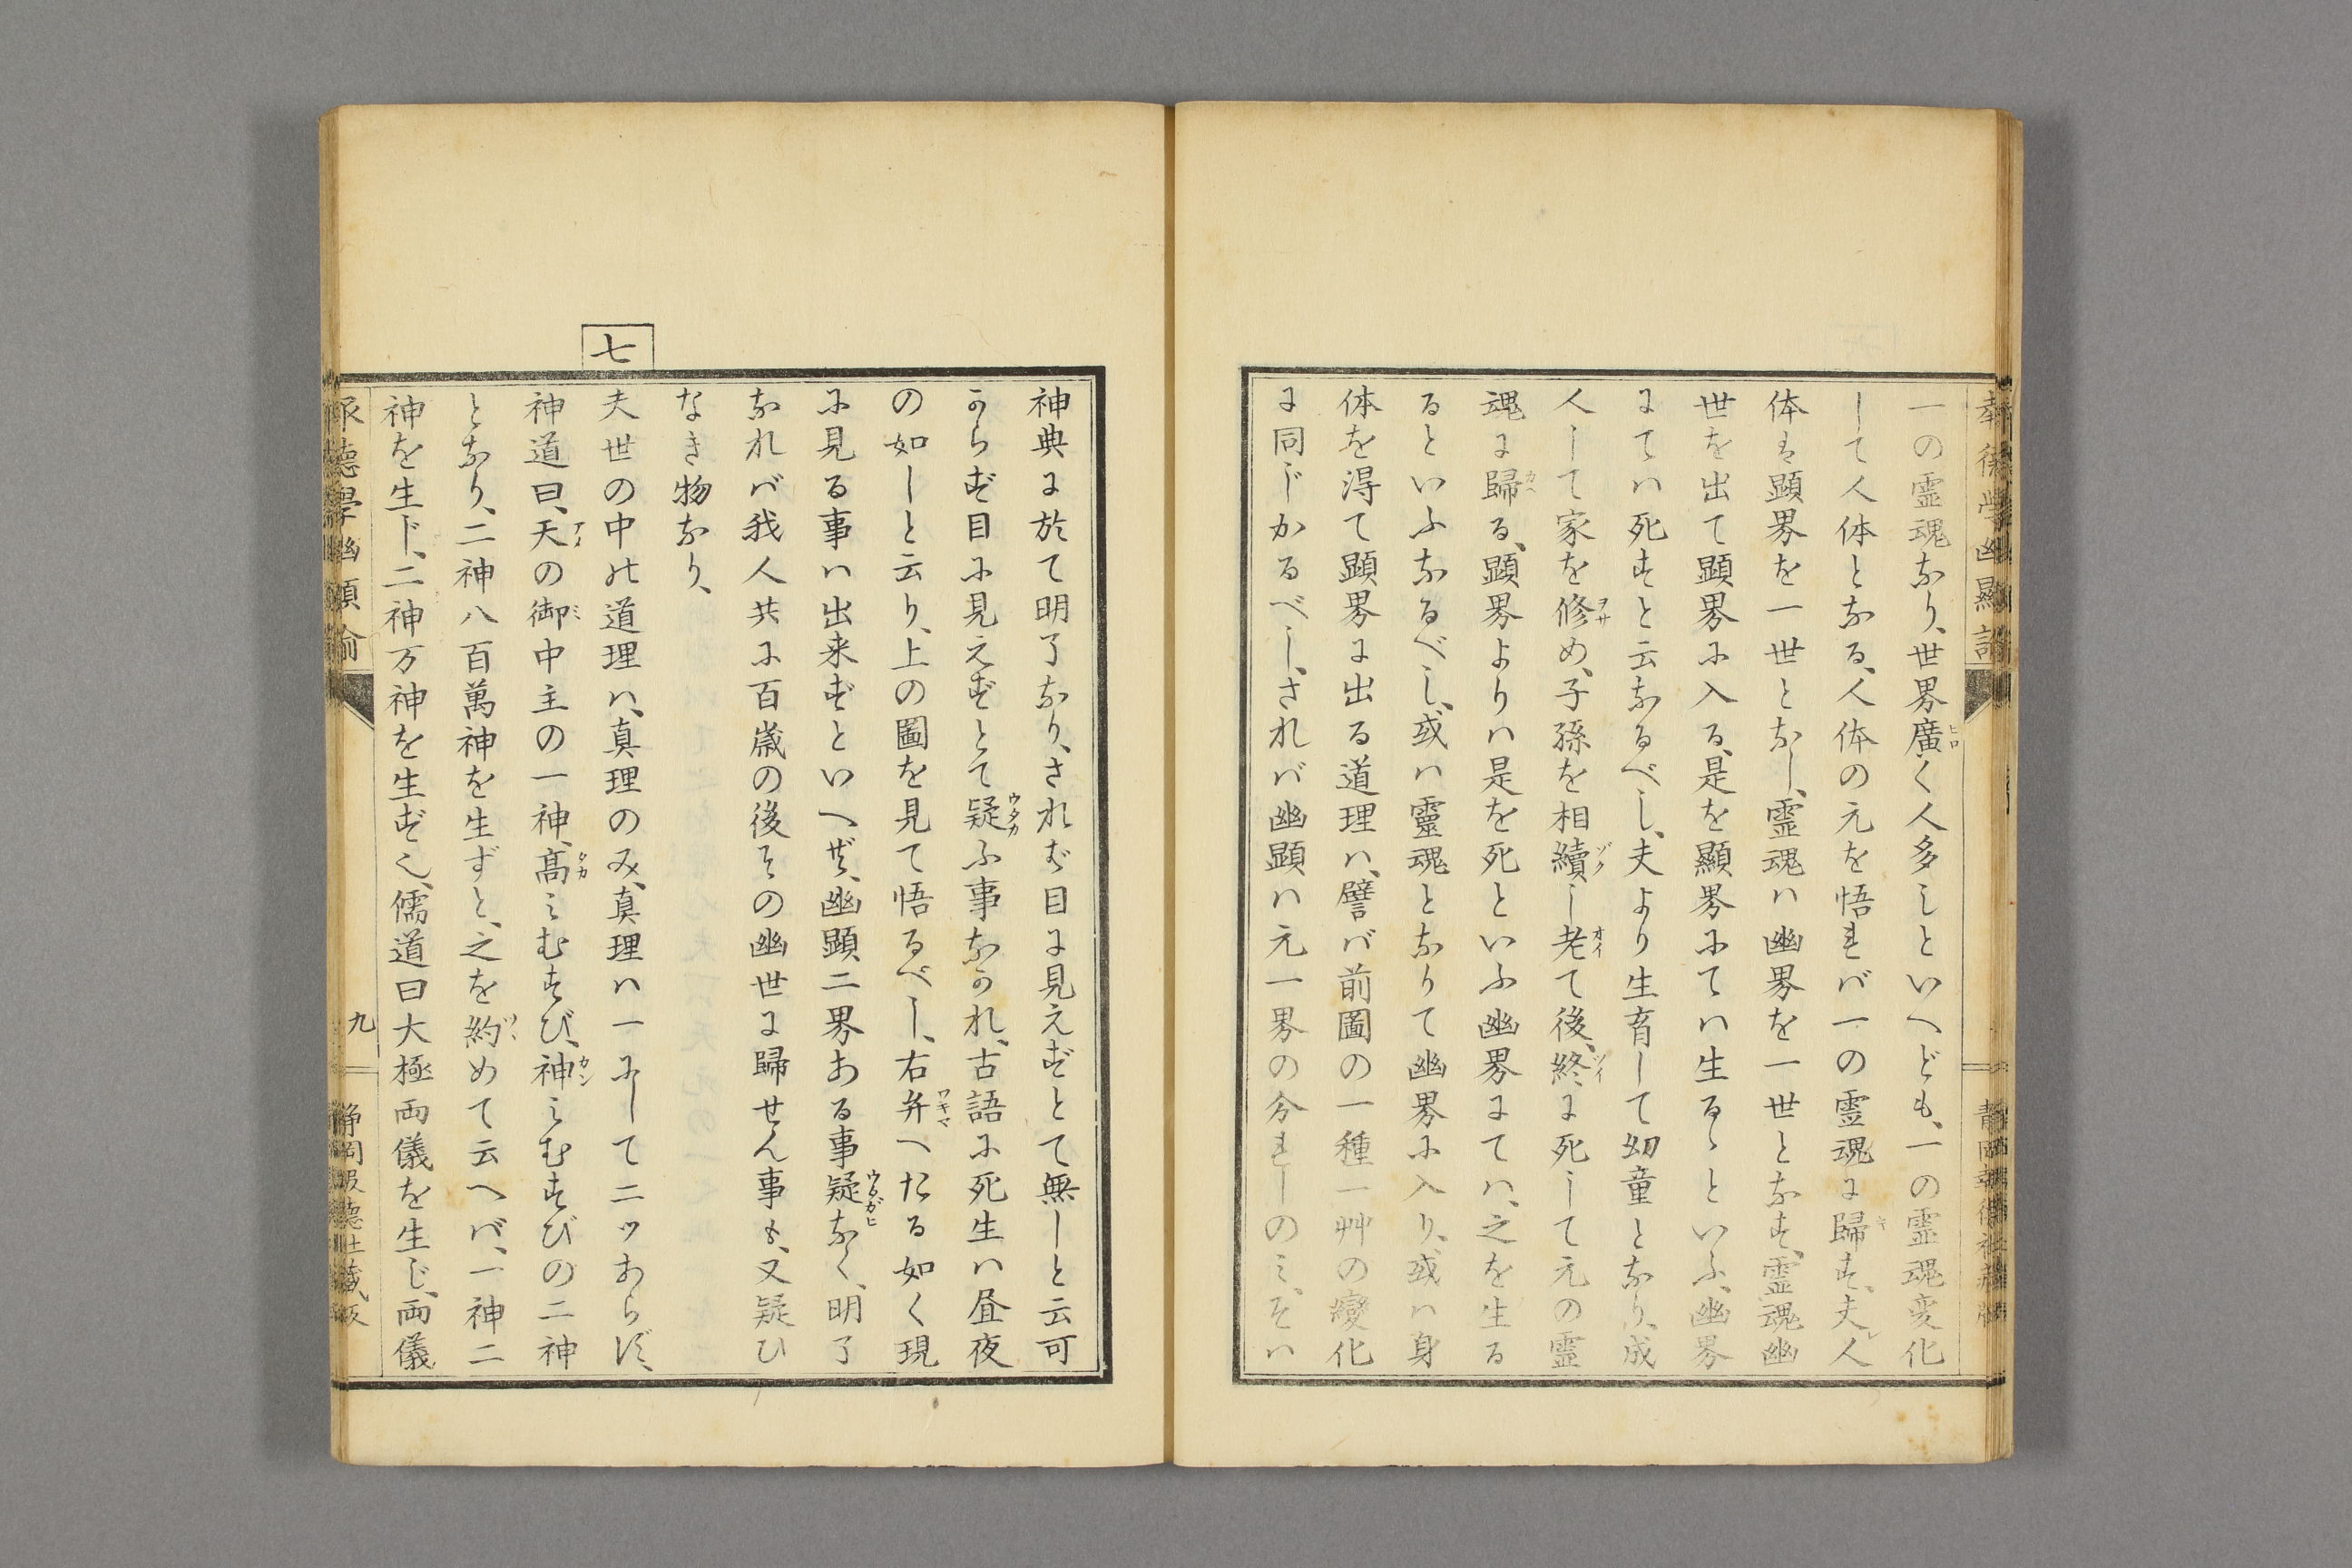 一の霊魂なり、世界廣く人多しといへども、一の霊魂変化
して人体となる、人体の元を悟れバ一の霊魂に歸す、夫人
体は顕界を一世となし、霊魂ハ幽界を一世となす、霊魂幽
世を出て顕界に入る、是を顯界にてハ生るゝといふ、幽界
にてハ死すと云なるべし、夫より生育して幼童となり、成
人して家を修め、子孫を相續し老て後、終に死して元の霊
魂に歸る、顕界よりハ是を死といふ幽界にてハ、之を生る
るといふなるべし、或ハ靈魂となりて幽界に入り、或ハ身
体を得て顕界に出る道理ハ、譬バ前圖の一種一艸の變化
に同じかるべし、されバ幽顕ハ元一界の分れしのミ、そハ
神典に於て明了なり、されば目に見えずとて無しと云可
からず目に見えずとて疑ふ事なかれ、古語に死生ハ昼夜
の如しと云り、上の圖を見て悟るべし、右弁へたる如く現
に見る事ハ出来ずといへども、幽顕二界ある事疑なく、明了
なれバ我人共に百歳の後その幽世に歸せん事も、又疑ひ
なき物なり、
七
夫世の中の道理ハ、真理のみ、真理ハ一にして二ツあらず、
神道曰、天の御中主の一神、高ミむすび、神ミむすびの二神
となり、二神八百萬神を生ずと、之を約めて云へバ、一神二
神を生ド、二神万神を生ず也、儒道曰大極両儀を生じ、両儀
德學幽顕
九
静岡報德社蔵版